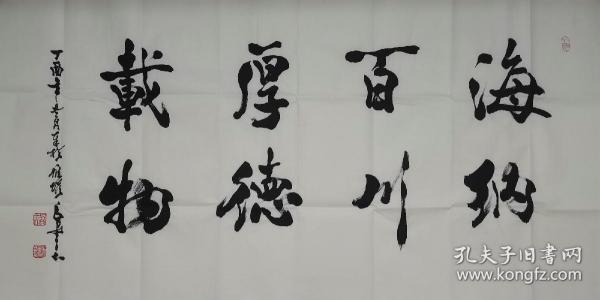 海纳
百川
厚德
載物
丁酉年
孔夫子旧书网
www.kongfz.com